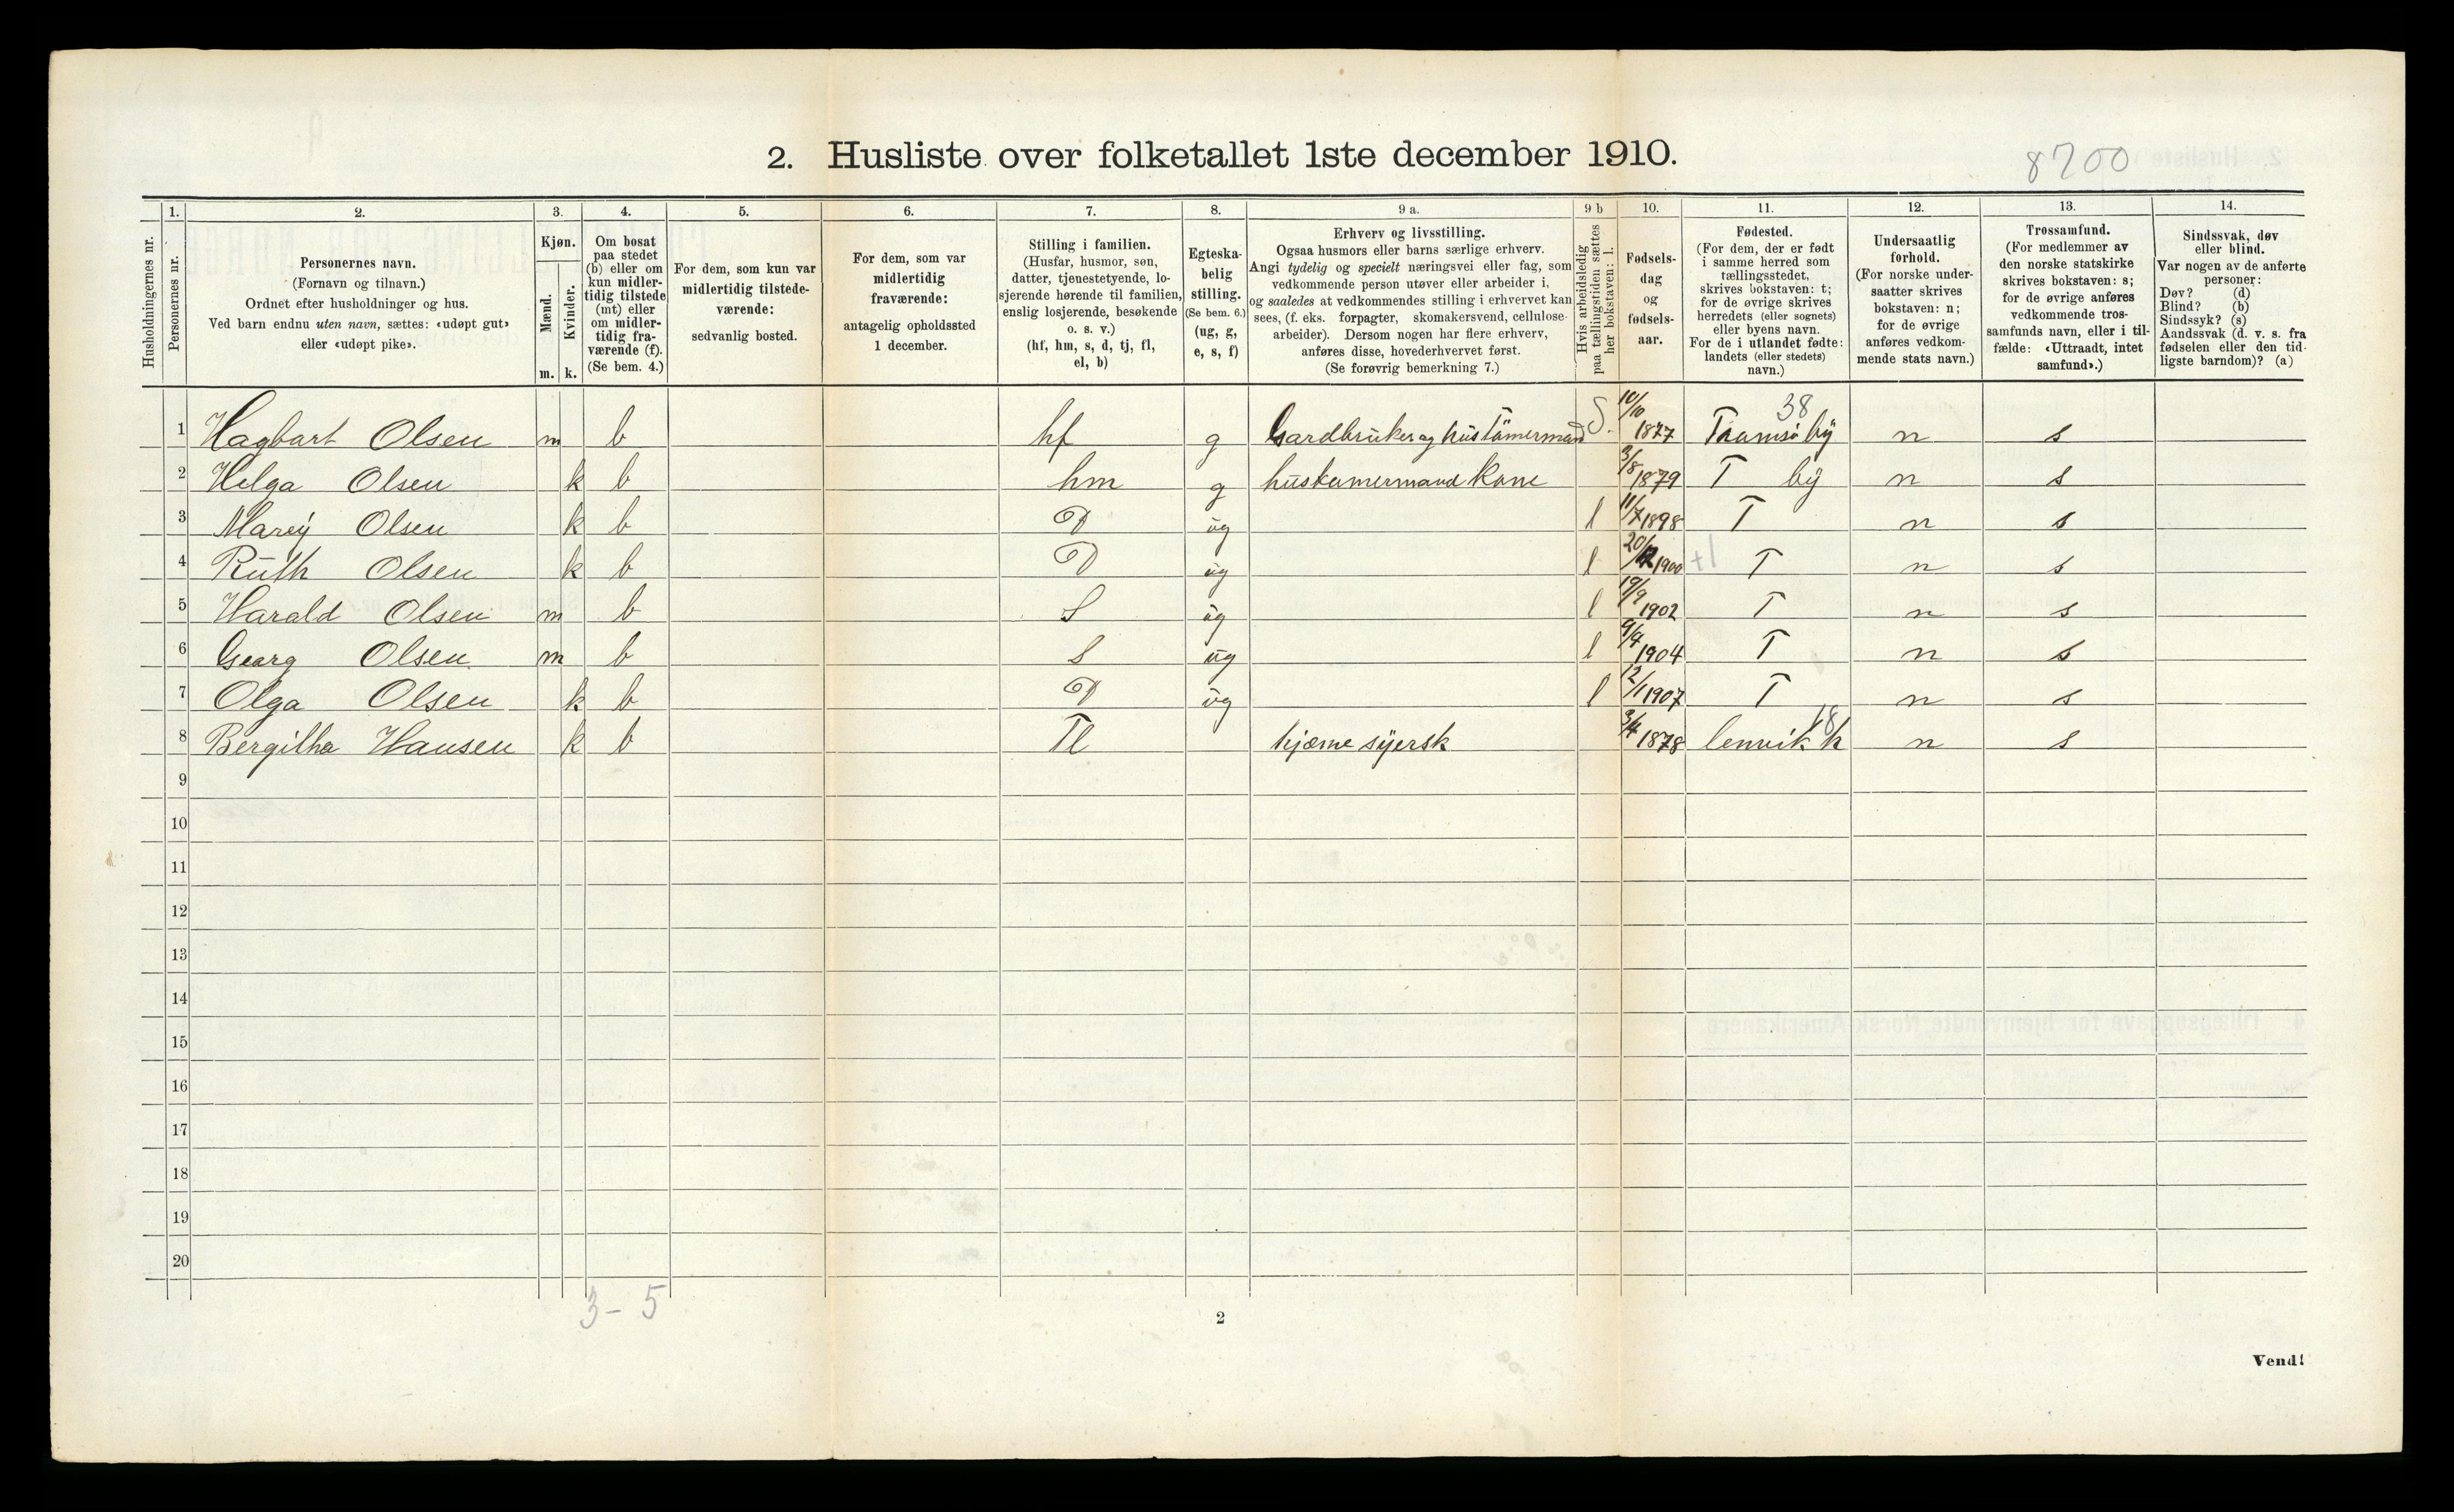 2. Husliste over folketallet 1ste december 1910.
8700
1. 2. 3. 4. 5. 6. 7. 8. 9 a. 9 b 10. 11. 12. 13. 14.
Husholdningernes nr.
Personernes nr.
Personernes navn.
(Fornavn og tilnavn.)
Ordnet efter husholdninger og hus.
Ved barn endnu uten navn, sættes: «udøpt gut»
eller «udøpt pike».
Kjøn.
Mænd.
Kvinder.
m. k.
Om bosat
paa stedet
(b) eller om
kun midler-
tidig tilstede
(mt) eller
om midler-
tidig fra-
værende (f).
(Se bem. 4.)
For dem, som kun var
midlertidig tilstede-
værende:
sedvanlig bosted.
For dem, som var
midlertidig
fraværende:
antagelig opholdssted
1 december.
Stilling i familien.
(Husfar, husmor, søn,
datter, tjenestetyende, lo-
sjerende hørende til familien,
enslig losjerende, besøkende
o. s. v.)
(hf, hm, s, d, tj, fl,
el, b)
Egteska-
belig
stilling.
(Se bem. 6.)
(ug, g,
e, s, f)
Erhverv og livsstilling.
Ogsaa husmors eller barns særlige erhverv.
Angi tydelig og specielt næringsvei eller fag, som
vedkommende person utøver eller arbeider i,
og saaledes at vedkommendes stilling i erhvervet kan
sees, (f. eks. forpagter, skomakersvend, cellulose-
arbeider). Dersom nogen har flere erhverv,
anføres disse, hovederhvervet først.
(Se forøvrig bemerkning 7.)
Hvis arbeidsledig
paa tællingstiden sættes
her bokstaven: l.
Fødsels-
dag
og
fødsels-
aar.
Fødested.
(For dem, der er født
i samme herred som
tællingsstedet,
skrives bokstaven: t;
for de øvrige skrives
herredets (eller sognets)
eller byens navn.
For de i utlandet fødte:
landets (eller stedets)
navn.)
Undersaatlig
forhold.
(For norske under-
saatter skrives
bokstaven: n;
for de øvrige
anføres vedkom-
mende stats navn.)
Trossamfund.
(For medlemmer av
den norske statskirke
skrives bokstaven: s;
for de øvrige anføres
vedkommende tros-
samfunds navn, eller i til-
fælde: «Uttraadt, intet
samfund».)
Sindssvak, døv
eller blind.
Var nogen av de anførte
personer:
Døv? (d)
Blind? (b)
Sindssyk? (s)
Aandssvak (d. v. s. fra
fødselen eller den tid-
ligste barndom)? (a)
38
1 Hagbart Olsen m b hf g Gardbruker og hustømermand S. 10/10 1877 Tromsö by n s
2 Helga Olsen k b hm g huskumermand Kone 3/8 1879 T by n s
3 Marey Olsen k b D ug l 11/7 1898 T n s
4 Ruth Olsen k b D ug l 20/12 1900 +1 T n s
5 Harald Olsen m b S ug l 19/9 1902 T n s
6 Georg Olsen m b s ug l 9/4 1904 T n s
7 Olga Olsen k b D ug l 12/1 1907 T n s
18
8 Bergitha Hansen k b Tl hjæme syersk 3/4 1878 lenvik h n s
9
10
11
12
13
14
15
16
17
18
19
20
3 - 5
2
Vend!